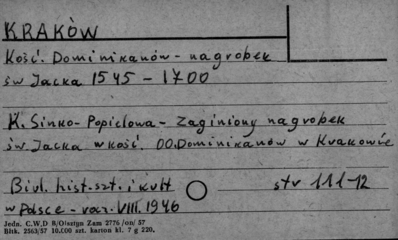 KRAKÒW
Kość. Dominikanów - nagrobek
św Jacka 1545 - 1700
K. Sinko - Popielowa - Zaginiony nagrobek
św. Jacka w kość. OO. Dominikanów w Krakowie
Biul. hist. szt. i kult str 111-12
w Polsce - rocz. VIII. 1946
Jedn. C.W.D B/Olsztyn Zam 2776 /on/ 57
Bltk. 2563/57 10.000 szt. karton kl. 7 g 220.